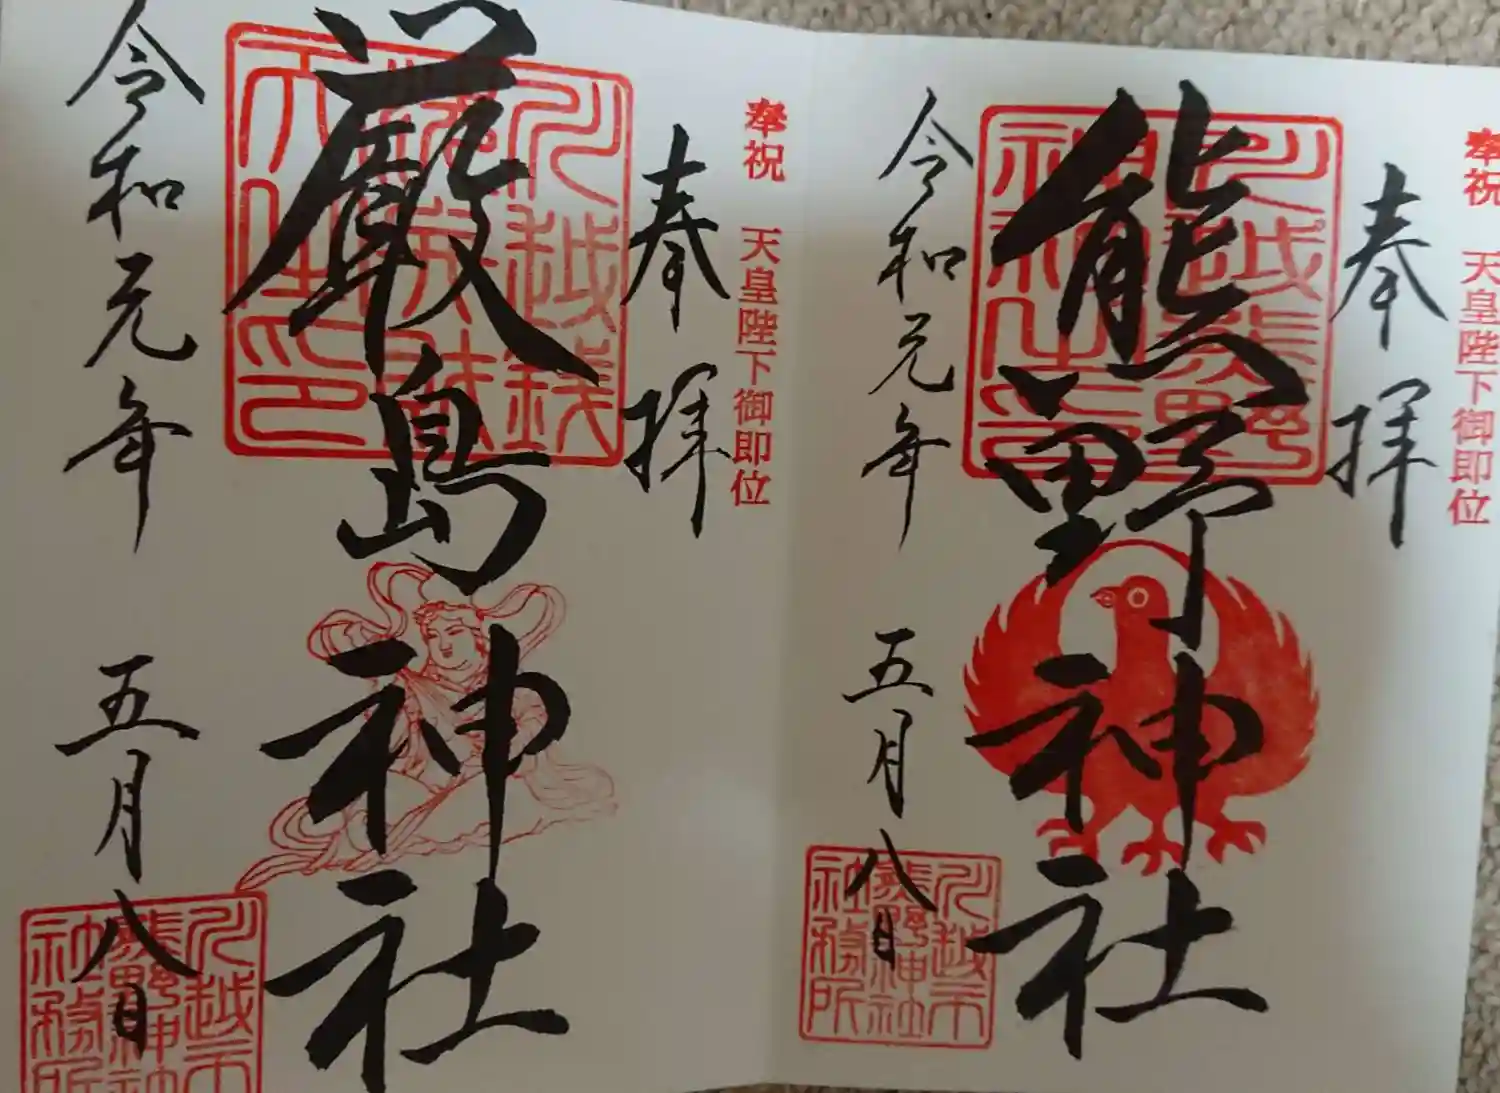 奉祝 天皇陛下御即位
奉拝
熊野神社
令和元年 五月八日
川越市
熊野神社
社務所
奉祝 天皇陛下御即位
奉拝
厳島神社
令和元年 五月八日
川越市
熊野神社
社務所